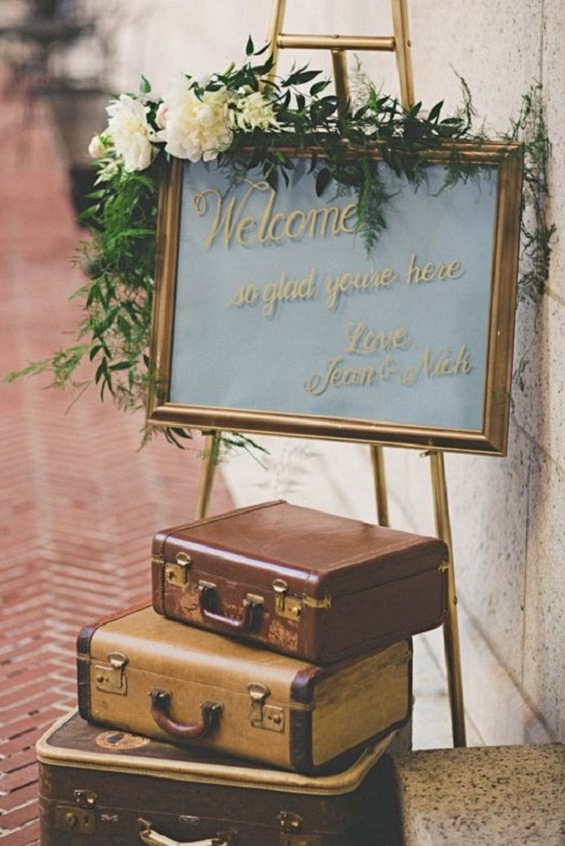 Welcome
so glad you're here
Love,
Jean & Nick